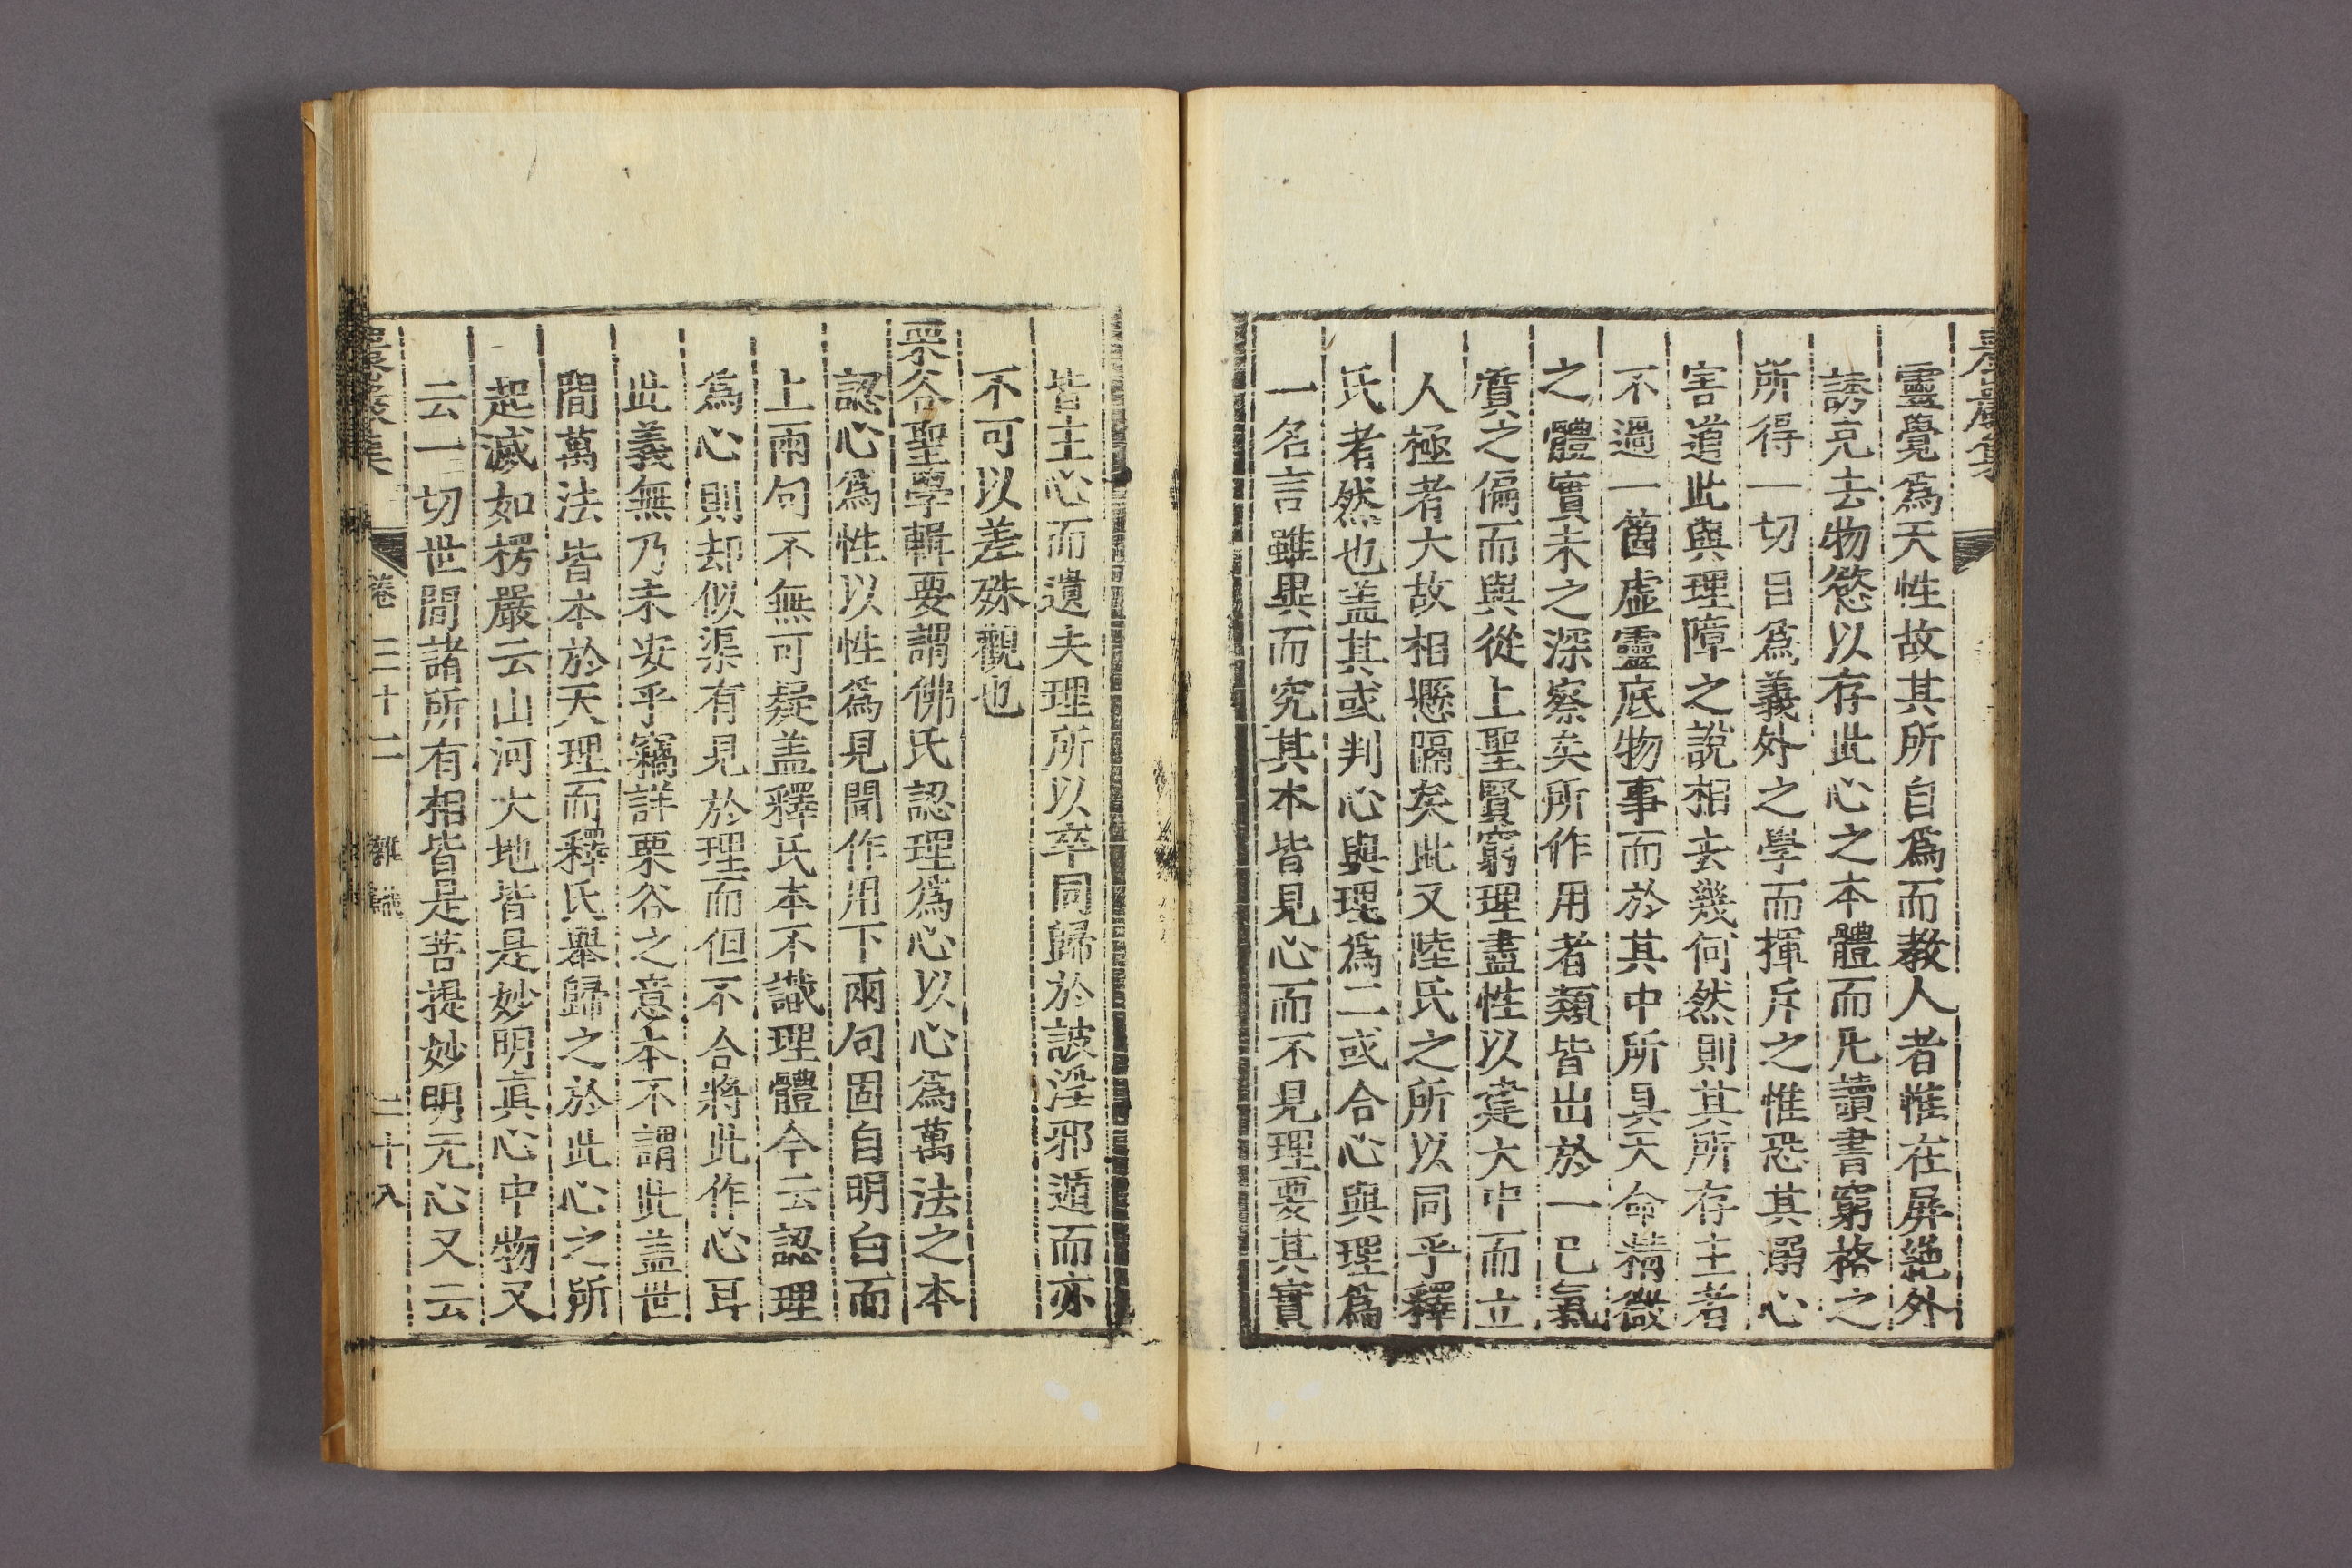 農巖集
靈覺爲天性故其所自爲而教人者惟在屏絶外
誘克去物慾以存此心之本體而凡讀書窮格之
所得一切目爲義外之學而揮斥之惟恐其溺心
害道此與理障之說相去幾何然則其所存主者
不過一箇虛靈底物事而於其中所具天命精微
之體實未之深察矣所作用者類皆出於一己氣
質之偏而與從上聖賢窮理盡性以建大中而立
人極者大故相懸隔矣此又陸氏之所以同乎釋
氏者然也盖其或判心與理爲二或合心與理爲
一名言雖異而究其本皆見心而不見理要其實
皆主心而遺夫理所以卒同歸於詖淫邪遁而亦
不可以差殊觀也
栗谷聖學輯要謂佛氏認理爲心以心爲萬法之本
認心爲性以性爲見聞作用下兩句固自明白而
上兩句不無可疑盖釋氏本不識理體今云認理
爲心則却似渠有見於理而但不合將此作心耳
此義無乃未安乎竊詳栗谷之意本不謂此盖世
間萬法皆本於天理而釋氏舉歸之於此心之所
起滅如楞嚴云山河大地皆是妙明眞心中物又
云一切世間諸所有相皆是菩提妙明元心又云
農巖集 卷三十二 雜識 二十八